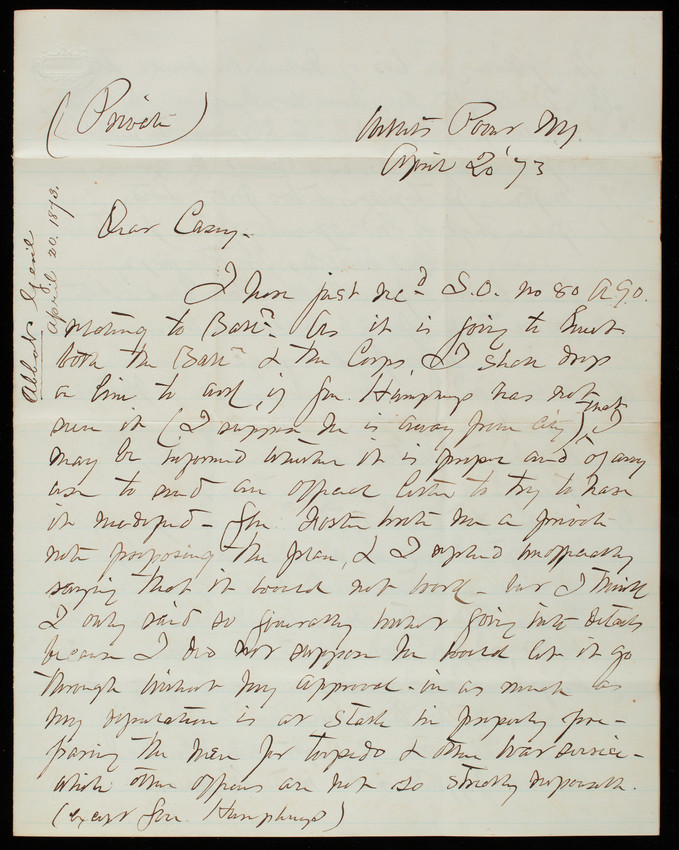 (Private)
Willets Point NY
April 20 '73
Abbot Genl
April 20. 1873.
Dear Casey -
I have just rec'd S.O. no 80 A.G.O.
relating to Batn. As it is going to hurt
both the Batn & the Corps, I shall drop
a line to ask, if Gen. Humphreys has not
seen it (I suppose he is away from city) that I
may be informed whether it is proper and of any
use to send an official letter to try to have
it modified - Gen. Foster wrote me a private
note proposing the plan, & I replied unofficially
saying that it would not work - but I think
I only said so generally without going into details
because I did not suppose he would let it go
through without my approval - in as much as
my reputation is at stake in properly pre-
paring the men for torpedo & other war service -
which other officers are not so strictly responsible.
(except Gen. Humphreys)